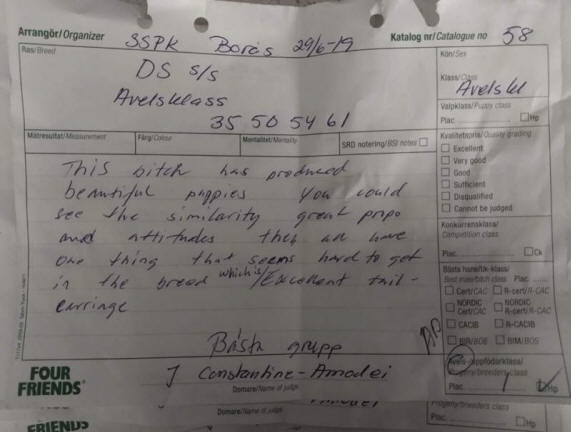 Arrangör/Organizer SSPK Borås 29/6-19 Katalog nr/Catalogue no 58
Ras/Breed
DS s/s
Avelsklass
35 50 54 61
Kön/Sex
Klass/Class
Avelskl
Valpklass/Puppy class
Plac. Hp
Mätresultat/Measurement Färg/Colour Mentalitet/Mentality SRD notering/BSI notes
Kvalitetspris/Quality grading
Excellent
Very good
Good
Sufficient
Disqualified
Cannot be judged
This bitch has produced
beautiful puppies You could
see the similarity great propo
and attitudes they all have
one thing that seems hard to get
in the breed which is/Excellent tail-
carriage
Konkurrensklass/
Competition class
Plac. Ck
Bästa hane/tik-klass/
Best male/bitch class Plac.
Cert/CAC R-cert/R-CAC
NORDIC Cert/CAC NORDIC R-cert/R-CAC
CACIB R-CACIB
BIR/BOB BIM/BOS
Bästa grupp
J Constantine-Amodei
Domare/Name of judge
Avels-uppfödarklass/
Progeny/breeders class
Plac. 1 Hp
FOUR
FRIENDS
Domare/Name of judge
Progeny/breeders class
Plac. Hp
FRIENDS